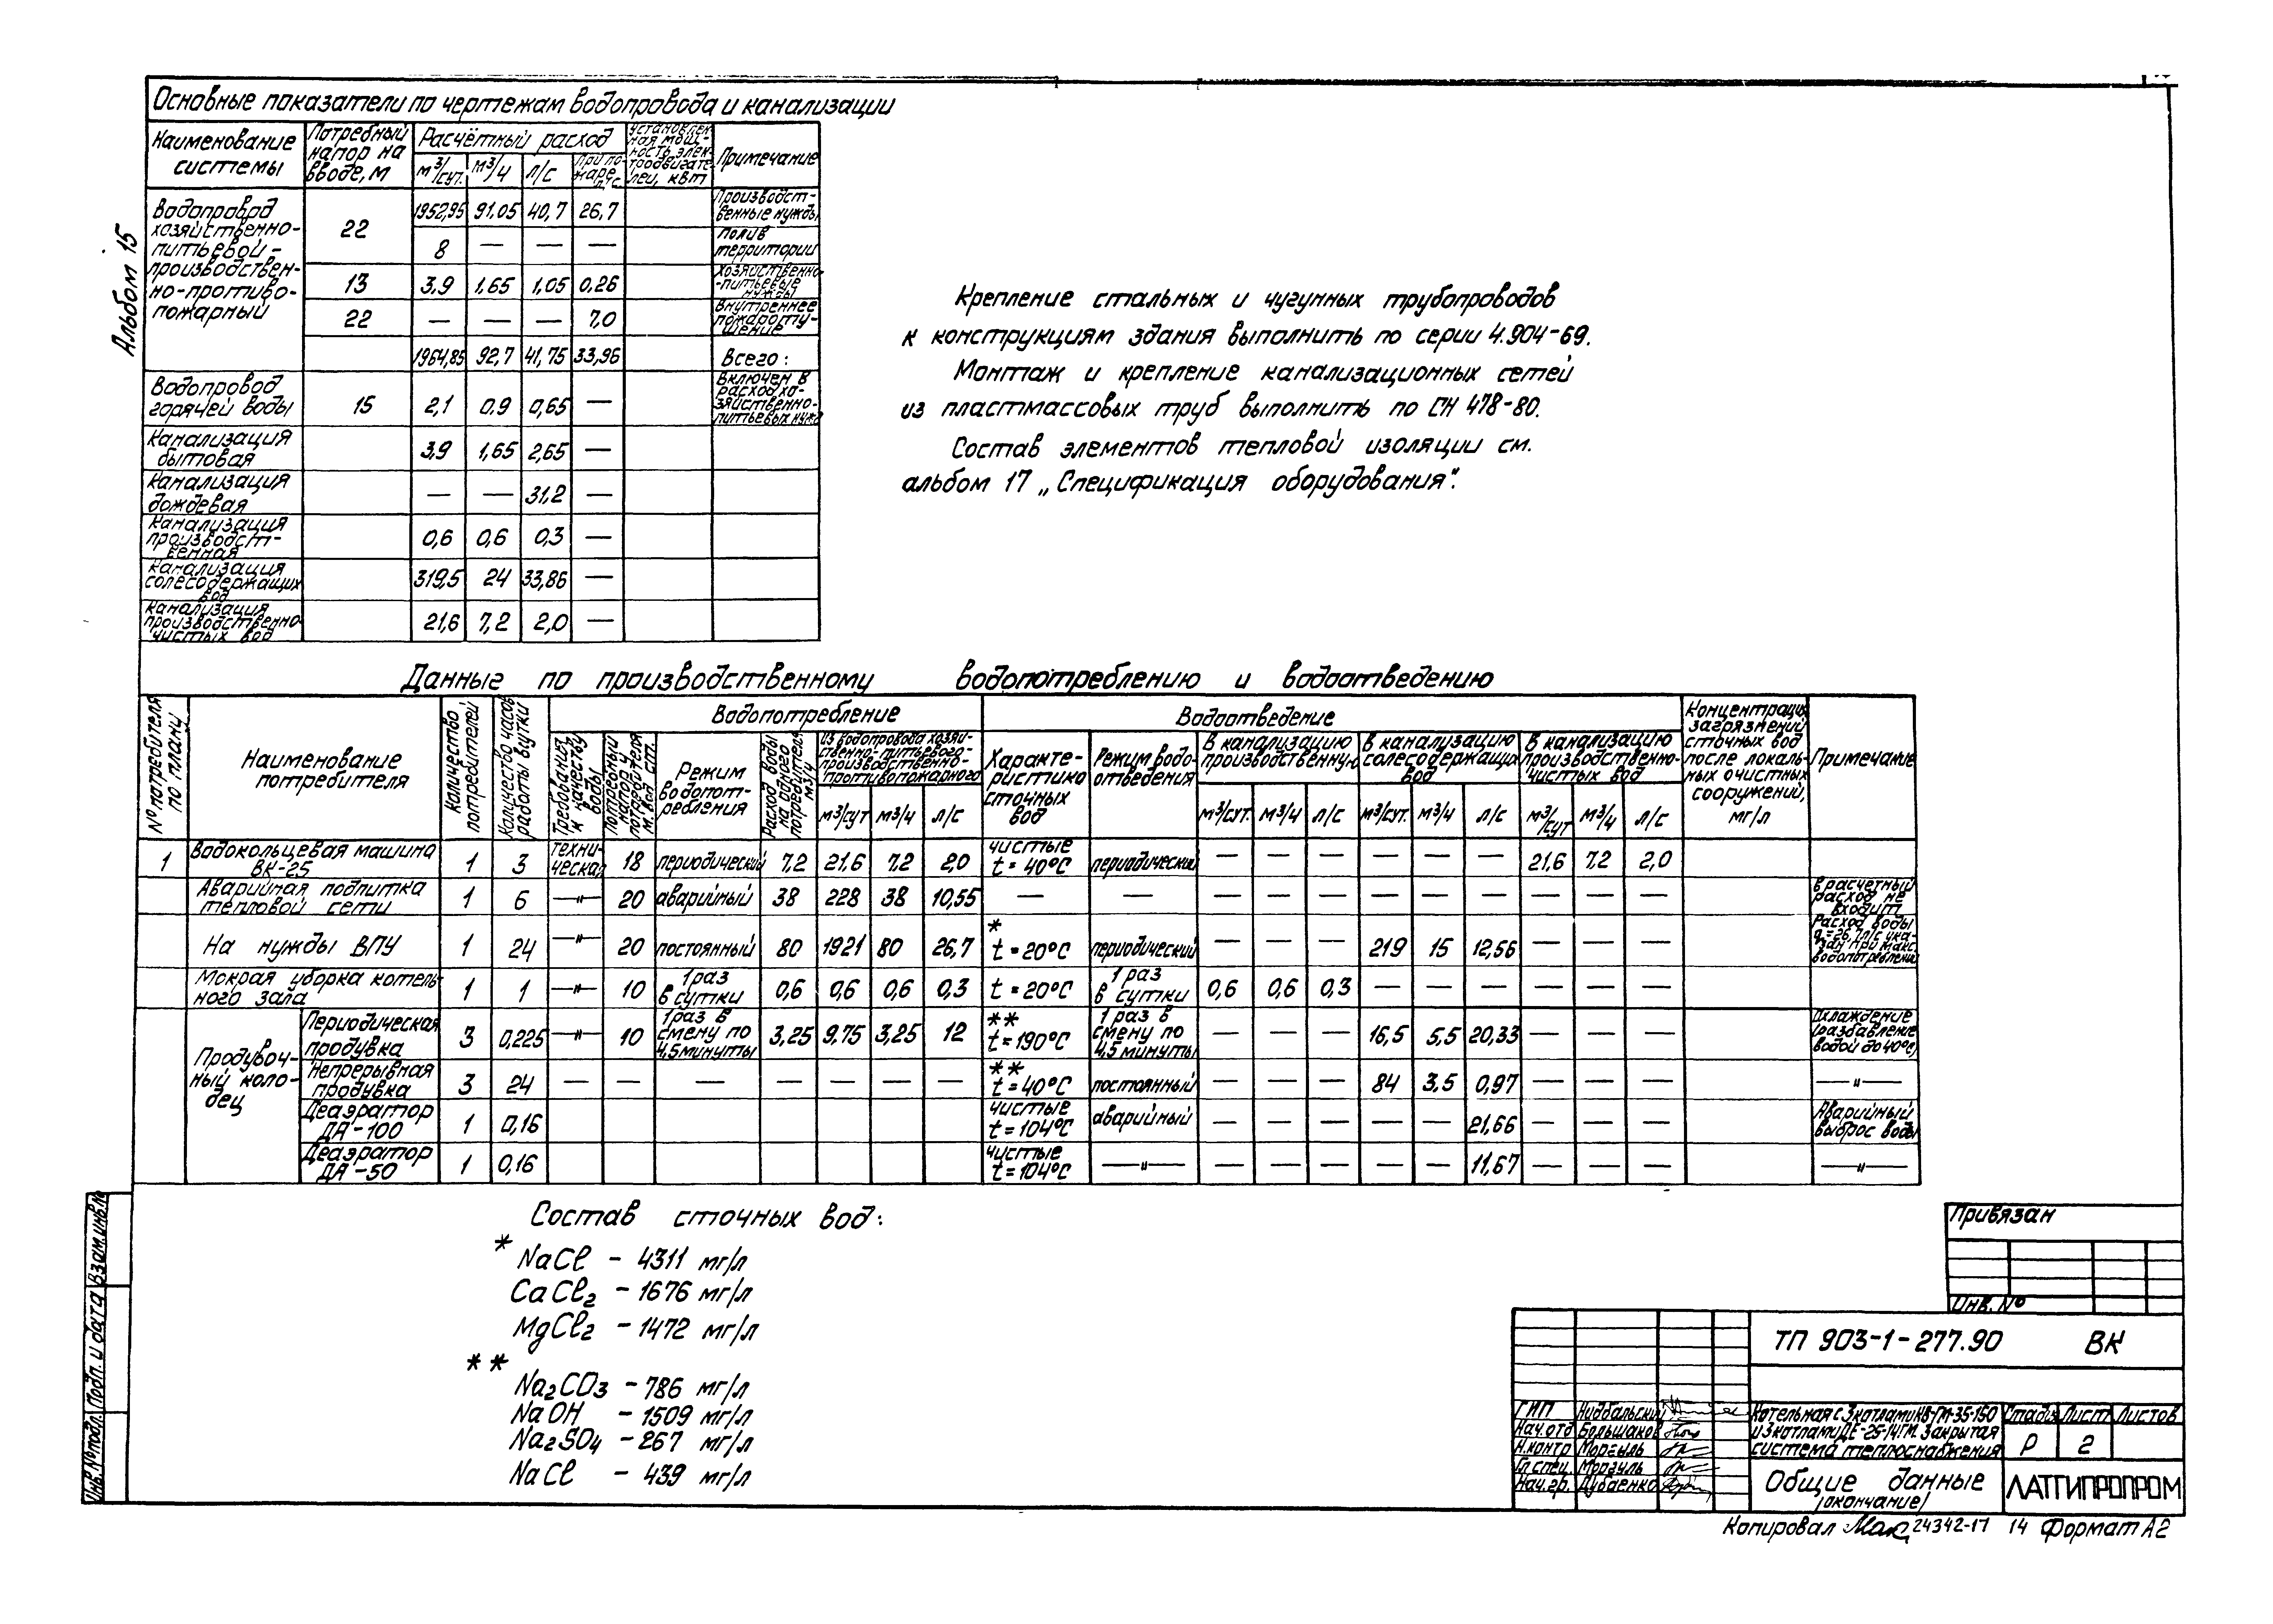 Альбом 15
Основные показатели по чертежам водопровода и канализации
Наименование системы | Потребный напор на вводе, м | Расчётный расход | Установленная мощность электродвигателей, квт | Примечание
м³/сут. | м³/ч | л/с | При пожаре, л/с
Водопровод хозяйственно-питьевой-производственно-противопожарный | 22 | 1952,95 | 91,05 | 40,7 | 26,7 | Производственные нужды
8 | — | — | — | полив территории
13 | 3,9 | 1,65 | 1,05 | 0,26 | хозяйственно-питьевые нужды
22 | — | — | — | 7,0 | внутреннее пожаротушение
1964,85 | 92,7 | 41,75 | 33,96 | Всего:
Водопровод горячей воды | 15 | 2,1 | 0,9 | 0,65 | — | Включен в расход хозяйственно-питьевых нужд
Канализация бытовая | 3,9 | 1,65 | 2,65 | —
Канализация дождевая | — | — | 31,2 | —
Канализация производственная | 0,6 | 0,6 | 0,3 | —
Канализация солесодержащих вод | 319,5 | 24 | 33,86 | —
Канализация производственно-чистых вод | 21,6 | 7,2 | 2,0 | —
Крепление стальных и чугунных трубопроводов
к конструкциям здания выполнить по серии 4.904-69.
Монтаж и крепление канализационных сетей
из пластмассовых труб выполнить по СН 478-80.
Состав элементов тепловой изоляции см.
альбом 17 „Спецификация оборудования".
Данные по производственному водопотреблению и водоотведению
№ потребителя по плану | Наименование потребителя | Количество потребителей | Количество часов работы в сутки | Водопотребление | Водоотведение | Концентрация загрязнений сточных вод после локальных очистных сооружений, мг/л | Примечание
Требования к качеству воды | Потребный напор у потребителя м. вод. ст. | Режим водопотребления | Расход воды на одного потребителя м³/ч | из водопровода хозяйственно-питьевого-производственно-противопожарного | Характеристика сточных вод | Режим водоотведения | В канализацию производственную | В канализацию солесодержащих вод | В канализацию производственно-чистых вод
м³/сут | м³/ч | л/с | м³/сут. | м³/ч | л/с | м³/сут. | м³/ч | л/с | м³/сут | м³/ч | л/с
1 | Водокольцевая машина ВК-25 | 1 | 3 | техническая | 18 | периодический | 7,2 | 21,6 | 7,2 | 2,0 | чистые t = 40°С | периодический | — | — | — | — | — | — | 21,6 | 7,2 | 2,0
Аварийная подпитка тепловой сети | 1 | 6 | —"— | 20 | аварийный | 38 | 228 | 38 | 10,55 | — | — | — | — | — | — | — | — | — | — | — | в расчетный расход не входит
На нужды ВПУ | 1 | 24 | —"— | 20 | постоянный | 80 | 1921 | 80 | 26,7 | * t = 20°С | периодический | — | — | — | 219 | 15 | 12,56 | — | — | — | Расход воды q=26,7л/с указан при макс. водопотреблении
Мокрая уборка котельного зала | 1 | 1 | —"— | 10 | 1 раз в сутки | 0,6 | 0,6 | 0,6 | 0,3 | t = 20°С | 1 раз в сутки | 0,6 | 0,6 | 0,3 | — | — | — | — | — | —
Продувочный колодец | Периодическая продувка | 3 | 0,225 | —"— | 10 | 1раз в смену по 4,5минуты | 3,25 | 9,75 | 3,25 | 12 | ** t = 190°С | 1 раз в смену по 4,5 минуты | — | — | — | 16,5 | 5,5 | 20,33 | — | — | — | Охлаждение (разбавление водой до 40°С)
Непрерывная продувка | 3 | 24 | — | — | — | — | — | — | — | ** t = 40°С | постоянный | — | — | — | 84 | 3,5 | 0,97 | — | — | — | —"—
Деаэратор ДА-100 | 1 | 0,16 | чистые t = 104°С | аварийный | — | — | — | — | — | 21,66 | — | — | — | Аварийный выброс воды
Деаэратор ДА-50 | 1 | 0,16 | чистые t = 104°С | —"— | — | — | — | — | — | 11,67 | — | — | — | —"—
Состав сточных вод:
* NaCl - 4311 мг/л
CaCl₂ - 1676 мг/л
MgCl₂ - 1472 мг/л
** Na₂CO₃ - 786 мг/л
NaOH - 1509 мг/л
Na₂SO₄ - 267 мг/л
NaCl - 439 мг/л
Привязан
Инв. №
ТП 903-1-277.90 ВК
ГИП Нидбальский
Нач.отд Большаков
Н.контр Моргуль
Гл.спец. Моргуль
Нач.гр. Дубаенко
Котельная с 3 котлами КВ-ГМ-35-150
и 3 котлами ДЕ-25-14ГМ. Закрытая
система теплоснабжения
Стадия | Лист | Листов
Р | 2
Общие данные
(окончание)
ЛАТГИПРОПРОМ
Копировал 24342-17 14 Формат А2
Инв. № подл. | Подп. и дата | Взам. инв. №